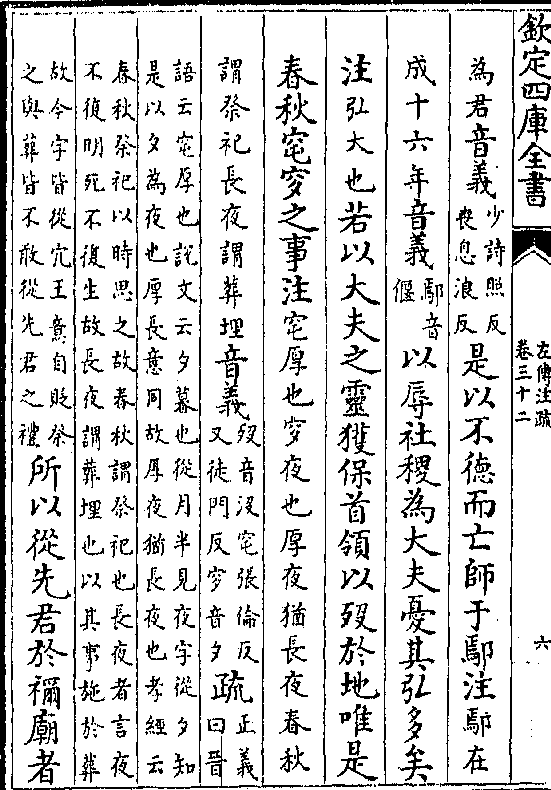 欽定四庫全書
左傳注疏
卷三十二
六
為君音義少詩照反喪息浪反是以不德而亡師于鄢注鄢在
成十六年音義鄢音偃以辱社稷為大夫憂其弘多矣
注弘大也若以大夫之靈獲保首領以歿於地唯是
春秋窀穸之事注窀厚也穸夜也厚夜猶長夜春秋
謂祭祀長夜謂葬埋音義歿音沒窀張倫反又徒門反穸音夕疏正義曰晉
語云窀厚也說文云夕暮也從月半見夜字從夕知
是以夕為夜也厚長意同故厚夜猶長夜也孝經云
春秋祭祀以時思之故春秋謂祭祀也長夜者言夜
不復明死不復生故長夜謂葬埋也以其事施於葬
故今字皆從穴王意自貶祭之與葬皆不敢從先君之禮所以從先君於禰廟者